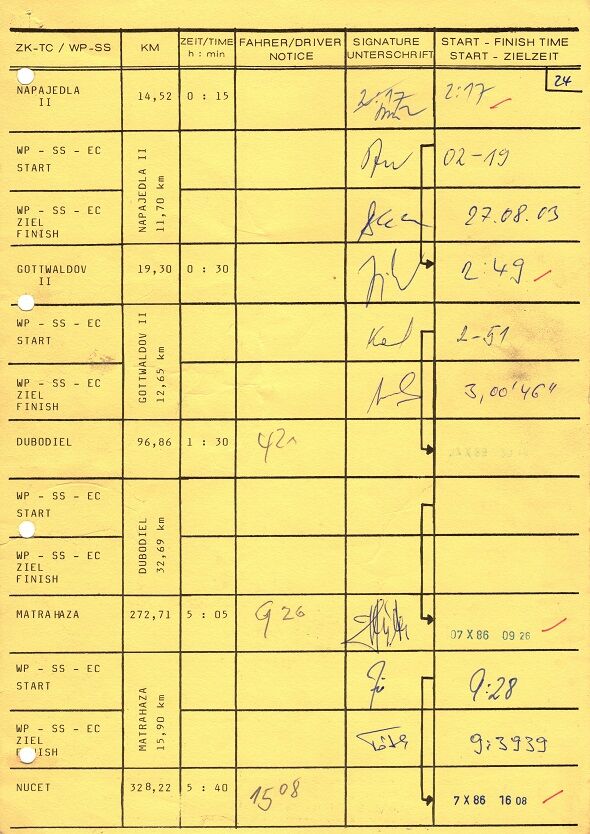 ZK-TC / WP-SS KM ZEIT/TIME FAHRER/DRIVER SIGNATURE START - FINISH TIME
h : min NOTICE UNTERSCHRIFT START - ZIELZEIT
24
NAPAJEDLA 14,52 0 : 15 2:17 2:17
II
WP - SS - EC 02-19
START
NAPAJEDLA II
11,70 km
WP - SS - EC 27.08.03
ZIEL
FINISH
GOTTWALDOV 19,30 0 : 30 2:49
II
WP - SS - EC 2-51
START
GOTTWALDOV II
12,65 km
WP - SS - EC 3,00'46"
ZIEL
FINISH
DUBODIEL 96,86 1 : 30 421
WP - SS - EC
START
DUBODIEL
32,69 km
WP - SS - EC
ZIEL
FINISH
MATRAHAZA 272,71 5 : 05 9 26 07 X 86 09 26
WP - SS - EC 9:28
START
MATRAHAZA
15,90 km
WP - SS - EC 9:3939
ZIEL
FINISH
NUCET 328,22 5 : 40 15 08 7 X 86 16 08